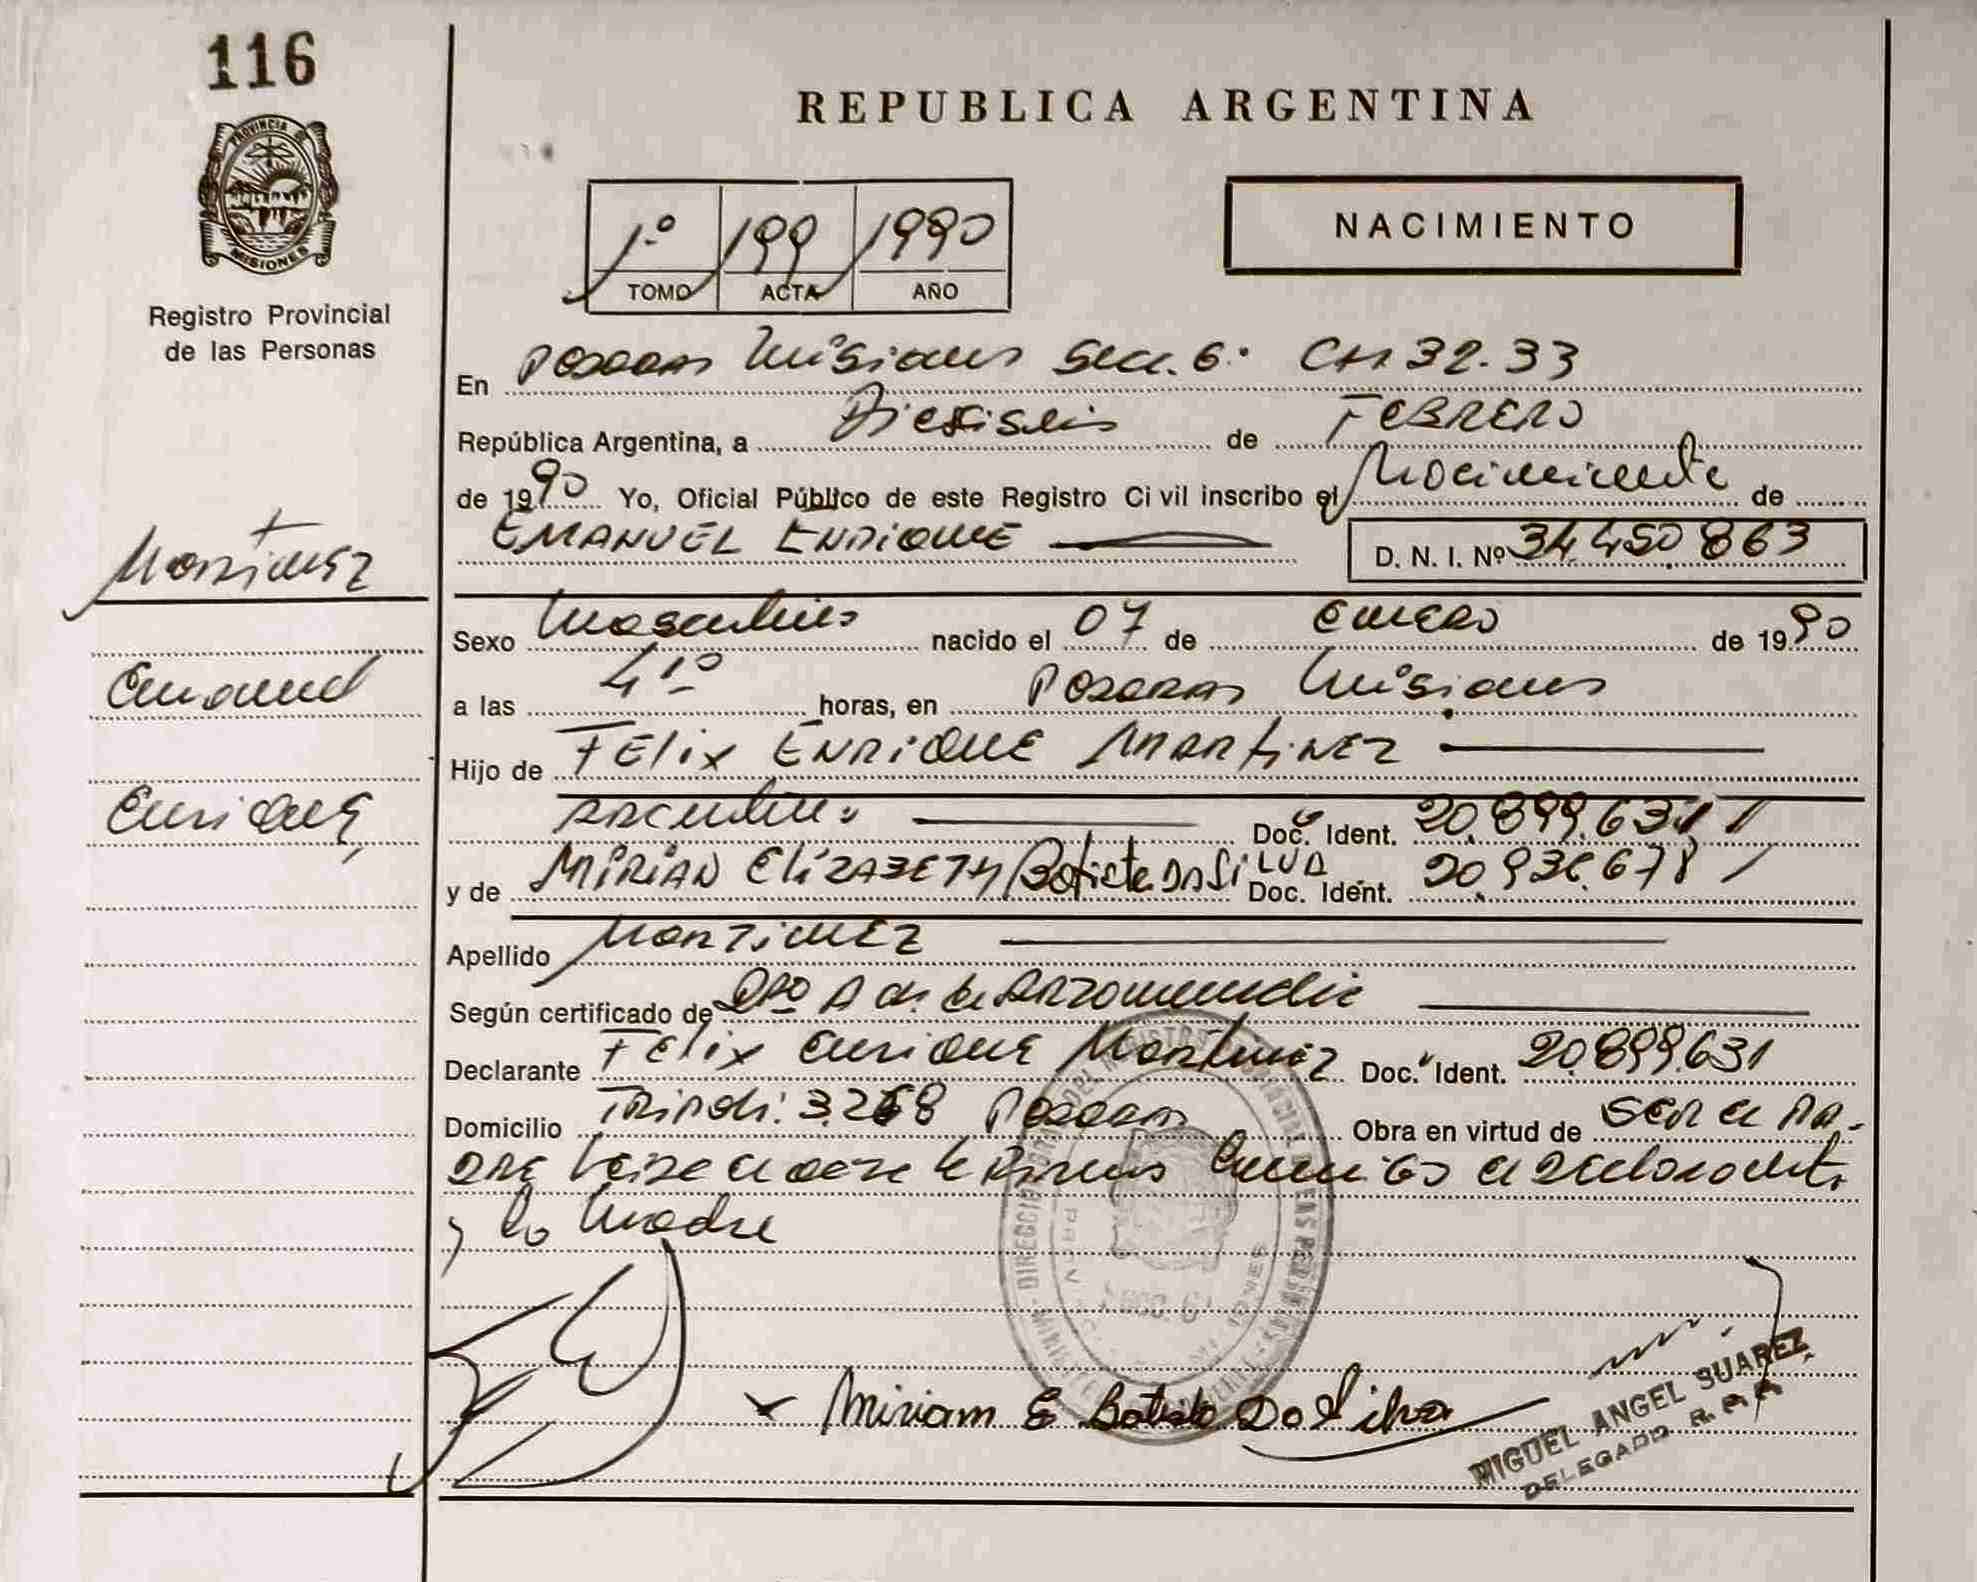 116
REPUBLICA ARGENTINA
PROVINCIA DE
MISIONES
NACIMIENTO
1º 199 1990
TOMO ACTA AÑO
Registro Provincial
de las Personas
En Posadas Misiones Secc. 6º CH 32.33
República Argentina, a Diesiseis de FEBRERO
de 1990 Yo, Oficial Público de este Registro Civil inscribo el Nacimiento de
EMANUEL ENRIQUE D. N. I. Nº 34.450.863
Martinez
Sexo Masculino nacido el 07 de ENERO de 1990
Emanuel
a las horas, en Posadas Misiones
Hijo de FELIX ENRIQUE MARTINEZ
Enrique
Argentino Doc. Ident. 20.899.631
y de MIRIAN ELIZABETH Batista DA SILVA Doc. Ident.
Apellido MARTINEZ
Según certificado de
Declarante FELIX Enrique Martinez Doc. Ident. 20.899.631
Domicilio 3268 Posadas Obra en virtud de SER el PA-
DRE el declarante
y la Madre
Miriam E Batista Da Silva
MIGUEL ANGEL SUAREZ
DELEGADO